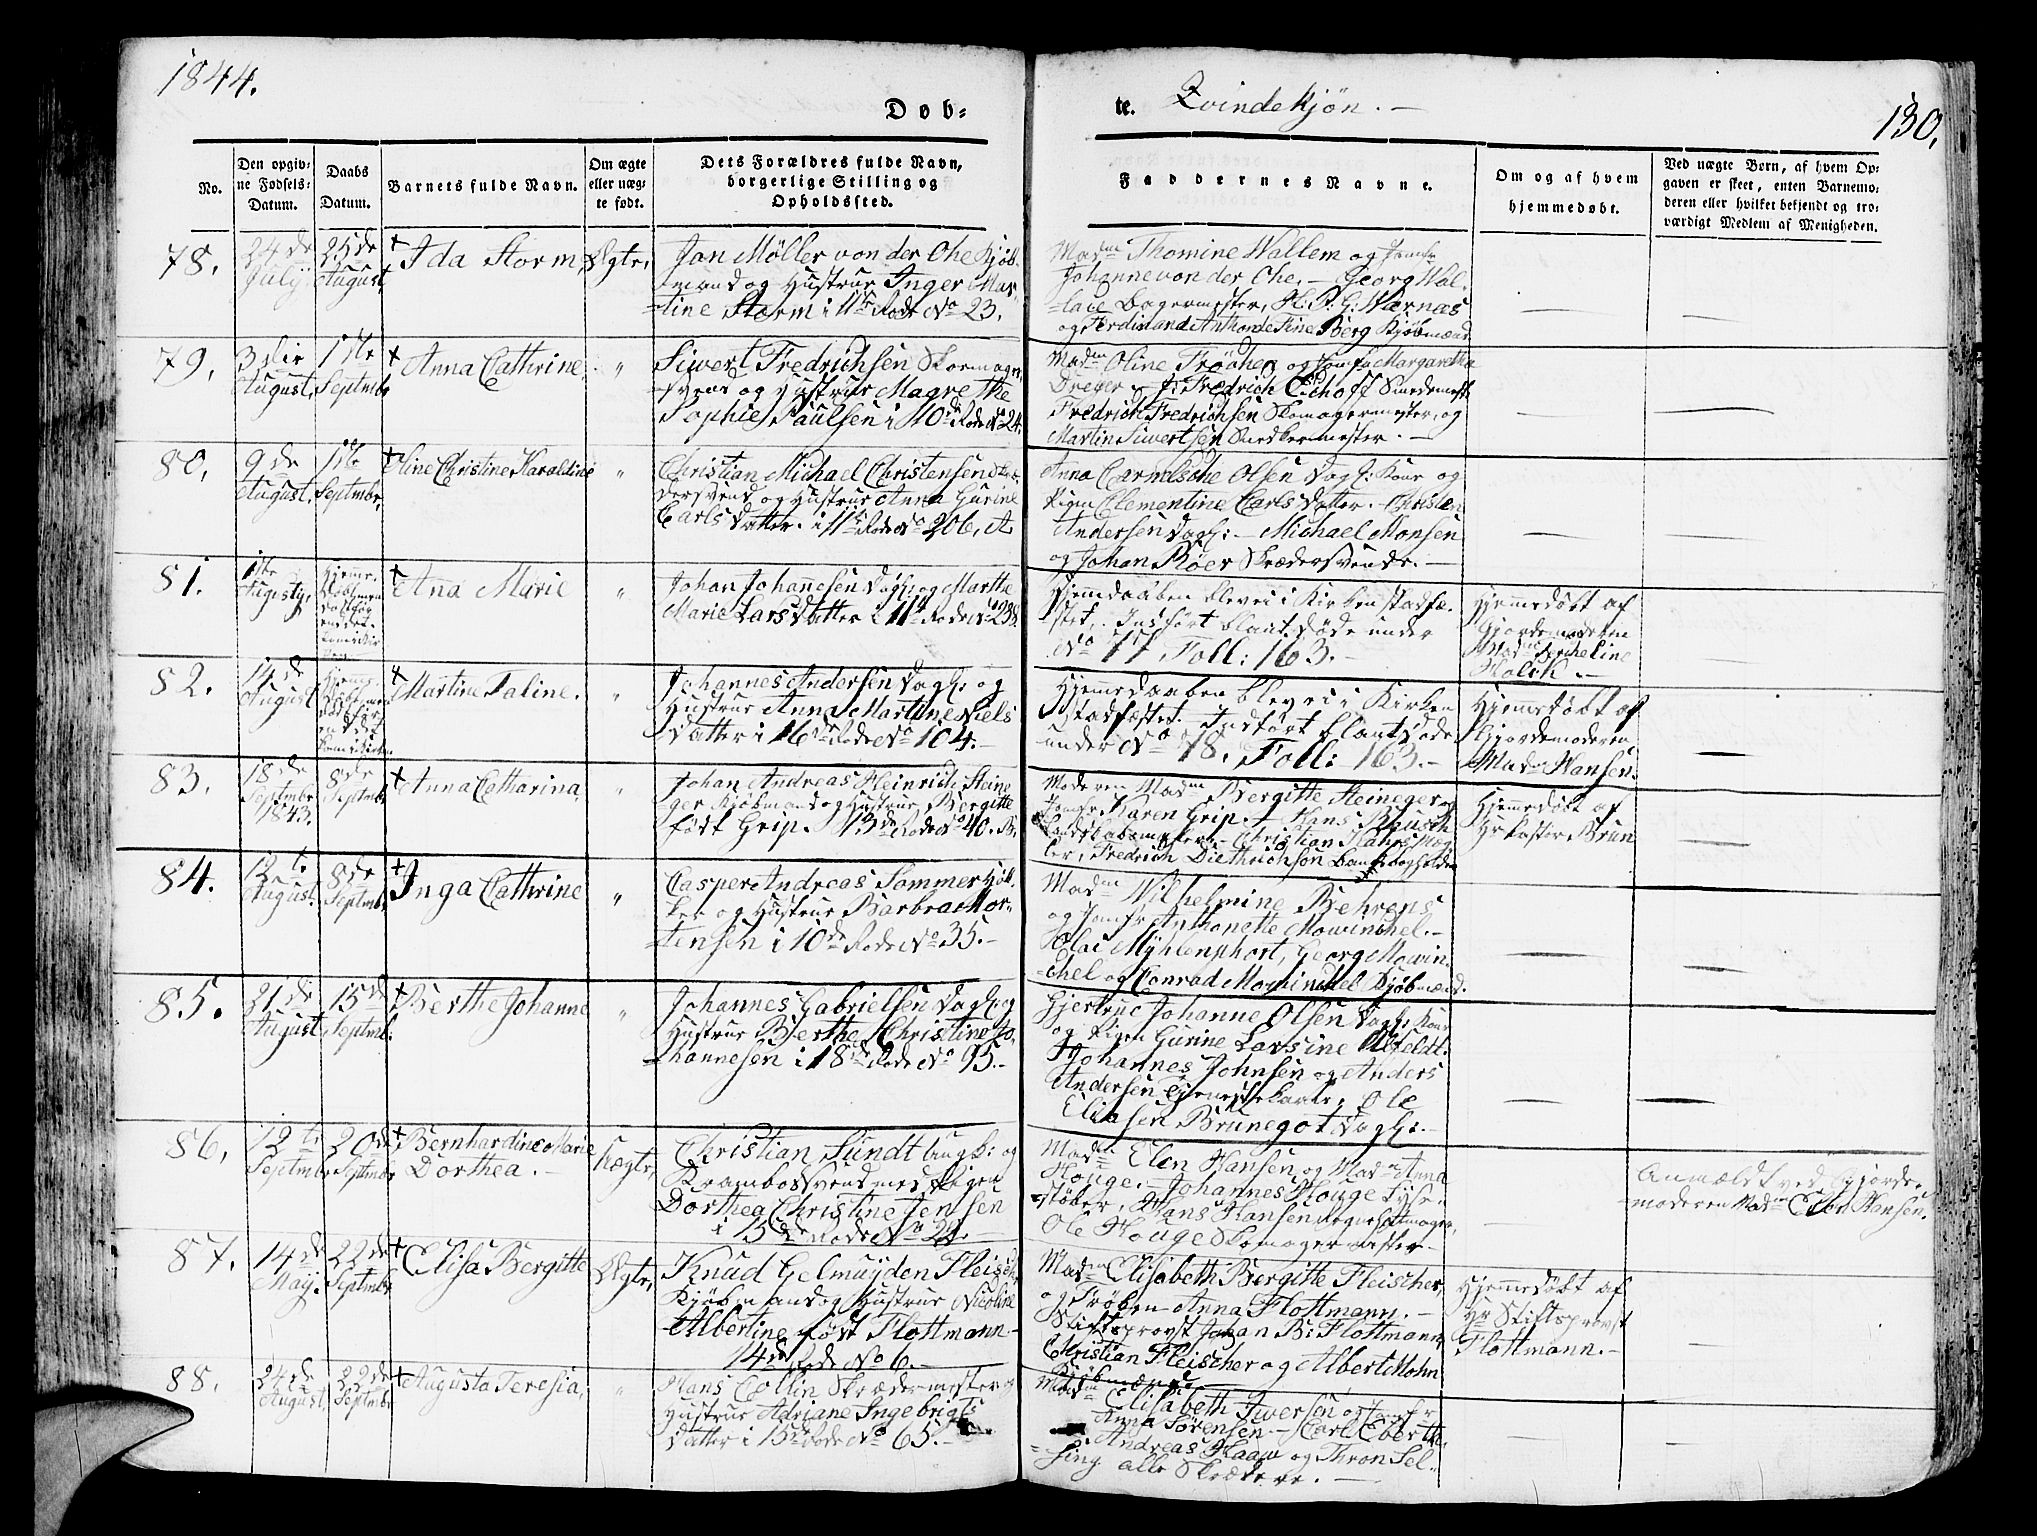 1844.
Döb-
te. Qvindekjön. —
130,
No.
Den opgiv-
ne Fødsels-
Datum.
Daabs
Datum.
Barnets fulde Navn.
Om ægte
eller uæg-
te født.
Dets Forældres fulde Navn,
borgerlige Stilling og
Opholdssted.
Faddernes Navne.
Om og af hvem
hjemmedøbt.
Ved uægte Børn, af hvem Op-
gaven er skeet, enten Barnemo-
deren eller hvilket bekjendt og tro-
værdigt Medlem af Menigheden.
78.
24de
July
25de
August,
Ida Storm,
Ægte,
Jan Möller von der Ohe Kjöb-
mand og Hustrue Inger Mar-
tine Storm i 11te Rode No 23.
Madm Thomine Wallem og Jomfr
Johanne von der Ohe. — Georg Wal-
lace Bagermester, H: P. G: Wærnes
og Ferdinand Anthon de Fine Berg Kjöbmænd
79,
3die
August,
1ste
Septmbr
Anna Cathrine,
"
Siwert Fredrichsen Skomager
svend og Hustrue Magrethe
Sophie Paulsen i 10de Rode No 24.
Madm Oline Fröchen og Jomfr Margaretha
Dreyer — J: Fredrich Eckhoff Smedemest
Fredrich Fredrichsen Skomagermester, og
Martin Siwertsen Snedkermester. —
80,
9de
August,
1ste
Septmbr,
Eline Christine Haraldine
"
Christian Michael Christensen
dersvend og Hustrue Anna Gurine
Carls Datter. i 11te Rode No 206, A
Anna Carmische Olsen Dagl: Kone og
Pigen Clementine Carls Datter. Christen
Andersen Dagl: — Michael Monsen
og Johan Röer Skrædersvende. —
81.
1ste
Augusty,
Hjemme-
Ana Marie
"
Johan Johannesen Dagl: og Marthe
Marie Lars Datter i 11te Rode No 238
Hjemdaaben blev ei i Kirken stadfæ-
stet,. Indfört blant Döde under
No 77. Foll: 163. —
Hjemmedöbt af
Gjordemoderen
Madm
Holck. —
82.
14de
August
Hjemme
Martine Taline.
"
Johannes Andersen Dagl: og
Hustrue Anna Martine Niels
Datter i 16de Rode No 104. —
Hjemmedaaben blev ei i Kirken
Stadfæstet. Indfört blant Döde
under No 78. Foll: 163. —
Hjemmedöbt af
Gjordemoderen
Madm Hansen.
83.
18de
Septmbr
1843.
8de
Septmbr
Anna Catharina,
"
Johan Andreas Heinrich Steine
ger Kjöbmand og Hustrue, Bergitte
födt Grip. 13de Rode No 40. B.
Moderen Madm Bergitte Steineger og
Jomfr, Karen Grip. — Hans Blausch
Christian Hansen Mög
ler, Fredrich Diethrichson Bankbogholder
Hjemmedöbt af
Hr Pastor Brun
84.
12te
August.
8de
Septmbr,
Inga Cathrine
"
Casper Andreas Sommer
og Hustrue Barbra Mor-
tensen i 10de Rode No 35. —
Madm Wilhelmine Behrens
og Jomfr Anthonette Mowinchel. —
Olai Mÿhlenphort, Georg Mowin-
chel og Conrad Mowinchel Kjöbmænd.
85.
21de
August
15de
Septmbr
Berthe Johanne
"
Johannes Gabrielsen Dagl: og
Hustrue Berthe Christine Jo-
hannesen i 18de Rode No 95. —
Gjertrue Johanne Olsen Dagl: Kone
og Pigen Gurine Larsine Ulfeldt.
Johannes Johnsen og Anders
Andersen Tjenestekarle, Ole
Eliasen Brunegot Dagl: —
86,
12te
Septmbr
20de
Septmbr
Bernhardine Marie
Dorthea. —
Uægte,
Christian Sundt Ungk: og
Krambodsvend med Pigen
Dorthea Christine Jensen
i 15de Rode No 29. —
Madm Elen Hansen og Madm Anna
Houge. — Johannes Houge Lyse-
stöber, Hans Hansen
Ole Houge Skomagermester —
Anmældt ved Gjorde-
moderen Madm Elen Hansen.
87.
14de
May.
22de
Septmbr
Elisa Bergitte
Ægte,
Knud Gelmuyden Fleischer
Kjöbmand og Hustrue Nicoline
Albertine födt Flottmann
14de Rode No 6. —
Madm Elisabeth Bergitte Fleischer,
og Fröken Anna Flottmann. —
Stiftsprovst Johan B: Flottmann,
Christian Fleischer og Albert Mohn
Kjöbmænd
Hjemmedöbt af
Hr Stiftsprovst
Flottmann. —
88.
24de
August,
22de
Septmbr
Augusta Teresia,
"
Hans Collin Skrædermester og
Hustrue Adriane Ingebrigts
Datter i 15de Rode No 65. —
Madm Elisabeth Iversen og Jomfr
Anna Sörensen. — Carl Eberth,
Andreas Haaw og Thron Sel-
sing alle Skrædere. —